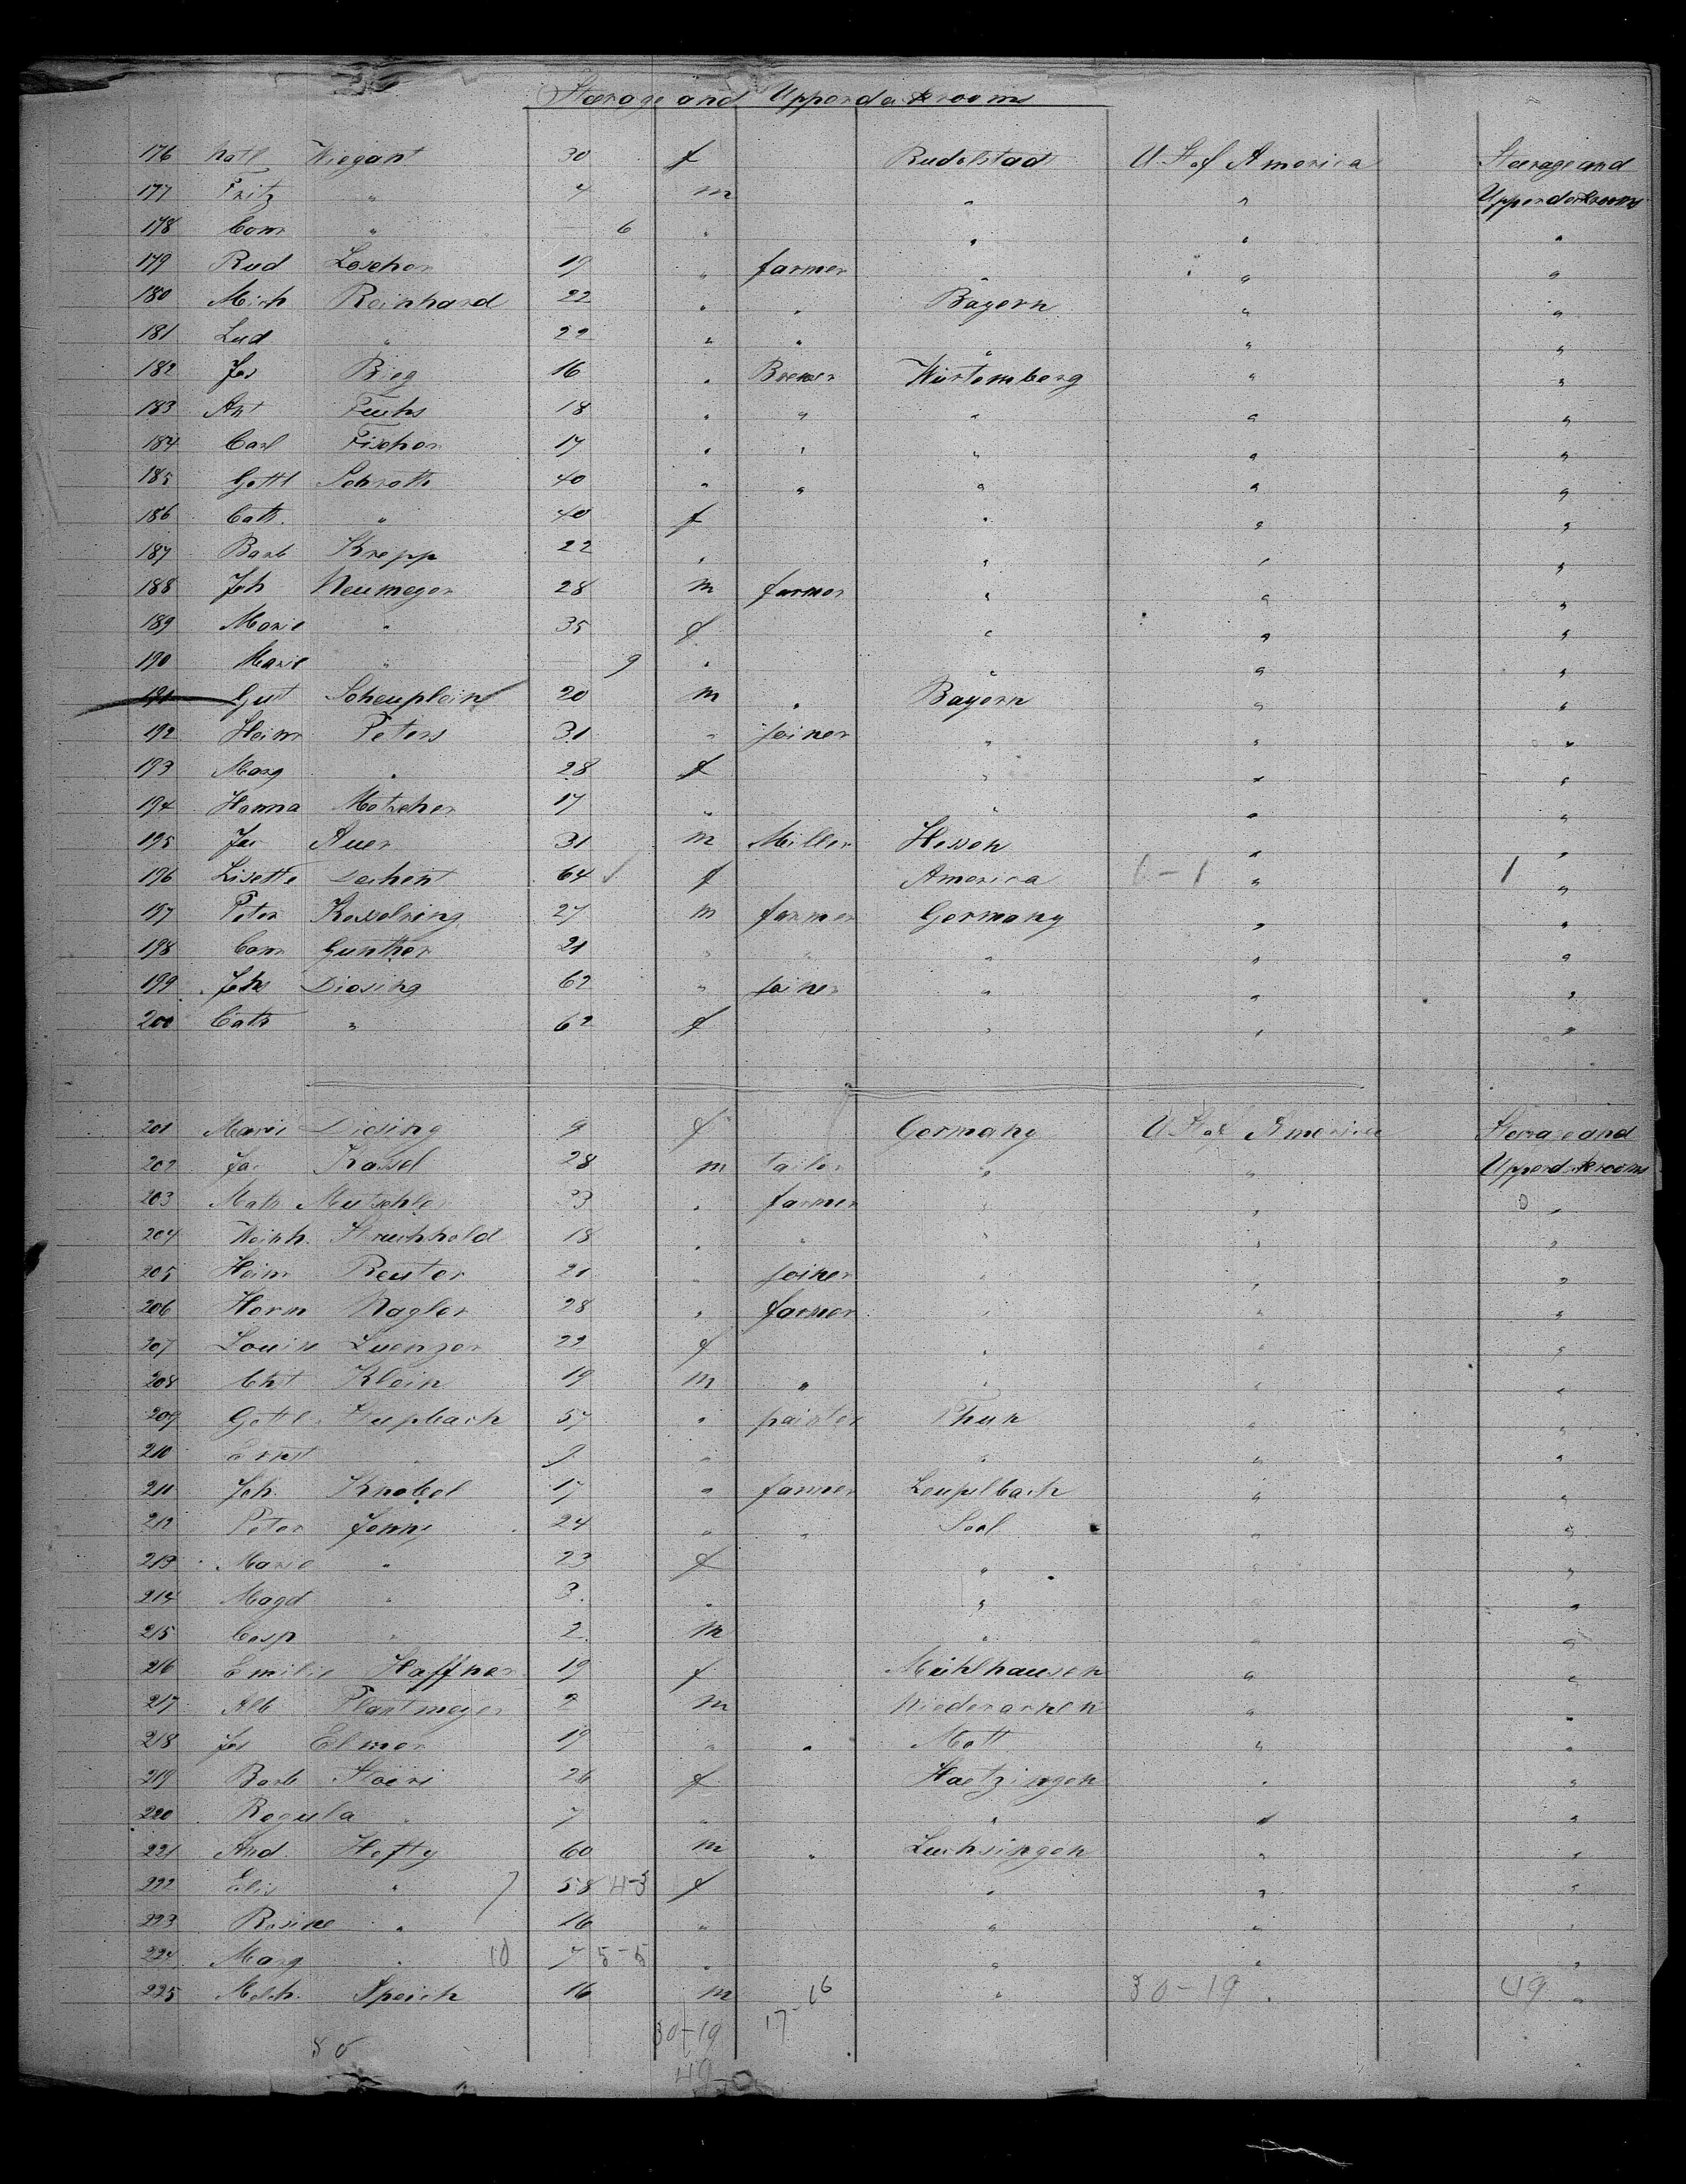 Steerage and Upperdeckrooms
176 Natl Wiegant 30 f Rudolstadt U St of America Steerage and
177 Fritz " 4 m " " Upperdeckrooms
178 Conr " 6 " " " "
179 Rud Loscher 19 " farmer " " "
180 Mich Reinhard 22 " " Bayern " "
181 Lud " 22 " " " " "
182 Jos Bieg 16 " Brewer Würtemberg " "
183 Ant Fuchs 18 " " " " "
184 Carl Fischer 17 " " " " "
185 Gottl Schroth 40 " " " " "
186 Cath. " 40 f " " "
187 Barb Krepp 22 " " " "
188 Joh Neumeyer 28 m farmer " " "
189 Marie " 35 f " " "
190 Marie " 9 " " " "
191 Gust Scheuplein 20 m " Bayern " "
192 Heinr Peters 31 " joiner " " "
193 Marg " 28 f " " "
194 Hanna Motscher 17 " " " "
195 Jos Auer 31 m Miller Hessen " "
196 Lisette Dechent 64 f America 0-1 " 1 "
197 Peter Kesselring 27 m farmer Germany " "
198 Conr Gunther 21 " " " " "
199 Johs Diesing 62 " joiner " " "
200 Cath " 62 f " " "
201 Marie Diesing 9 f Germany U St of America Steerage and
202 Jac Kassel 28 m tailor " " Upperdeckrooms
203 Math Mutschler 33 " farmer " " "
204 Reinh. Struchhold 18 " " " " "
205 Heinr Reuter 21 " joiner " " "
206 Herm Nagler 28 " farmer " " "
207 Louise Luenzer 22 f " " "
208 Chst Klein 19 m " " " "
209 Gottl. Stupbach 57 " painter Thun " "
210 Ernst " 9 " " " "
211 Joh. Knobel 17 " farmer Leuplbach " "
212 Peter Jenny 24 " " Sool " "
213 Marie " 23 f " " "
214 Magd " 3 " " " "
215 Casp " 2 m " " "
216 Emilie Haffner 19 f Mühlhausen " "
217 Alb Plantmeyer 9 m Niederarnen " "
218 Jos Elmer 19 " " Matt " "
219 Barb Stoeri 26 f Haetzingen " "
220 Regula " 7 " " " "
221 And. Hefty 60 m " Luchsingen " "
222 Elis " 7 58 4-3 f " " "
223 Rosine " 16 " " " "
224 Marg " 10 7 5-5 " " " "
225 Melch. Speich 16 m 16 " 30-19 " 49 "
30-19 17-
50
49-0